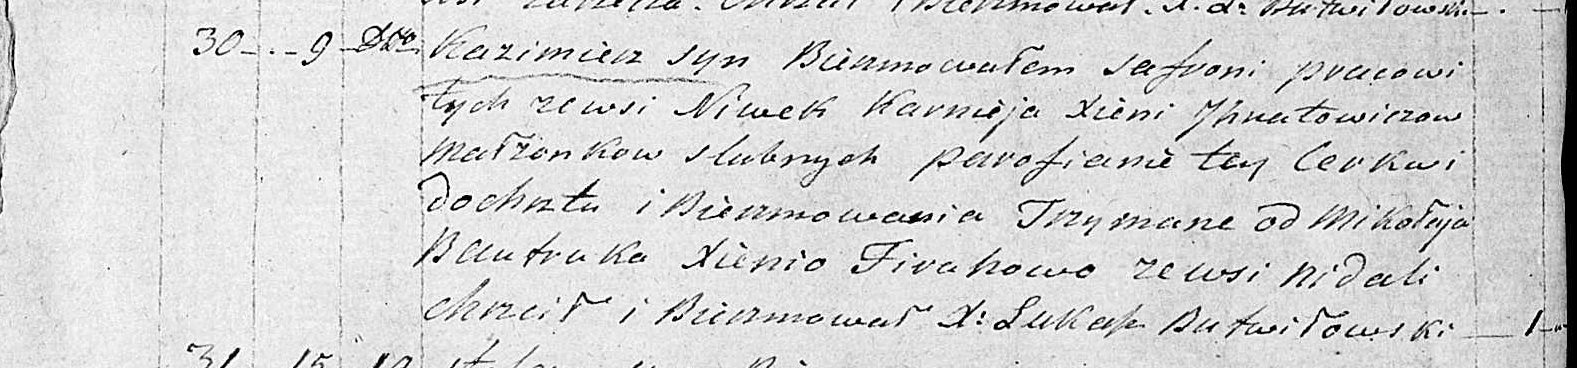 Chrzcił i Bierzmował. X. Ł. Butwiłowski
30 - . - 9 - Dtto Kazimierz syn Bierzmowałem Safroni pracowi
tych ze wsi Niwek Karnieja Xieni Ihnatowiczow
Małżonkow slubnych parafianie tey Cerkwi
do chrztu i Bierzmowania Trzymane od Mikołaja
Bautruka Xienio Firahowo ze wsi Nidali
chrzcił i Bierzmował X: Łukasz Butwiłowski — 1 -
31 15 10